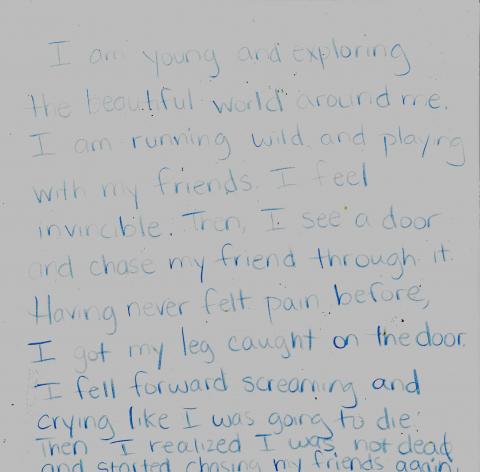 I am young and exploring
the beautiful world around me.
I am running wild and playing
with my friends. I feel
invincible. Then, I see a door
and chase my friend through it.
Having never felt pain before,
I got my leg caught on the door.
I fell forward screaming and
crying like I was going to die.
Then I realized I was not dead
and started chasing my friends again